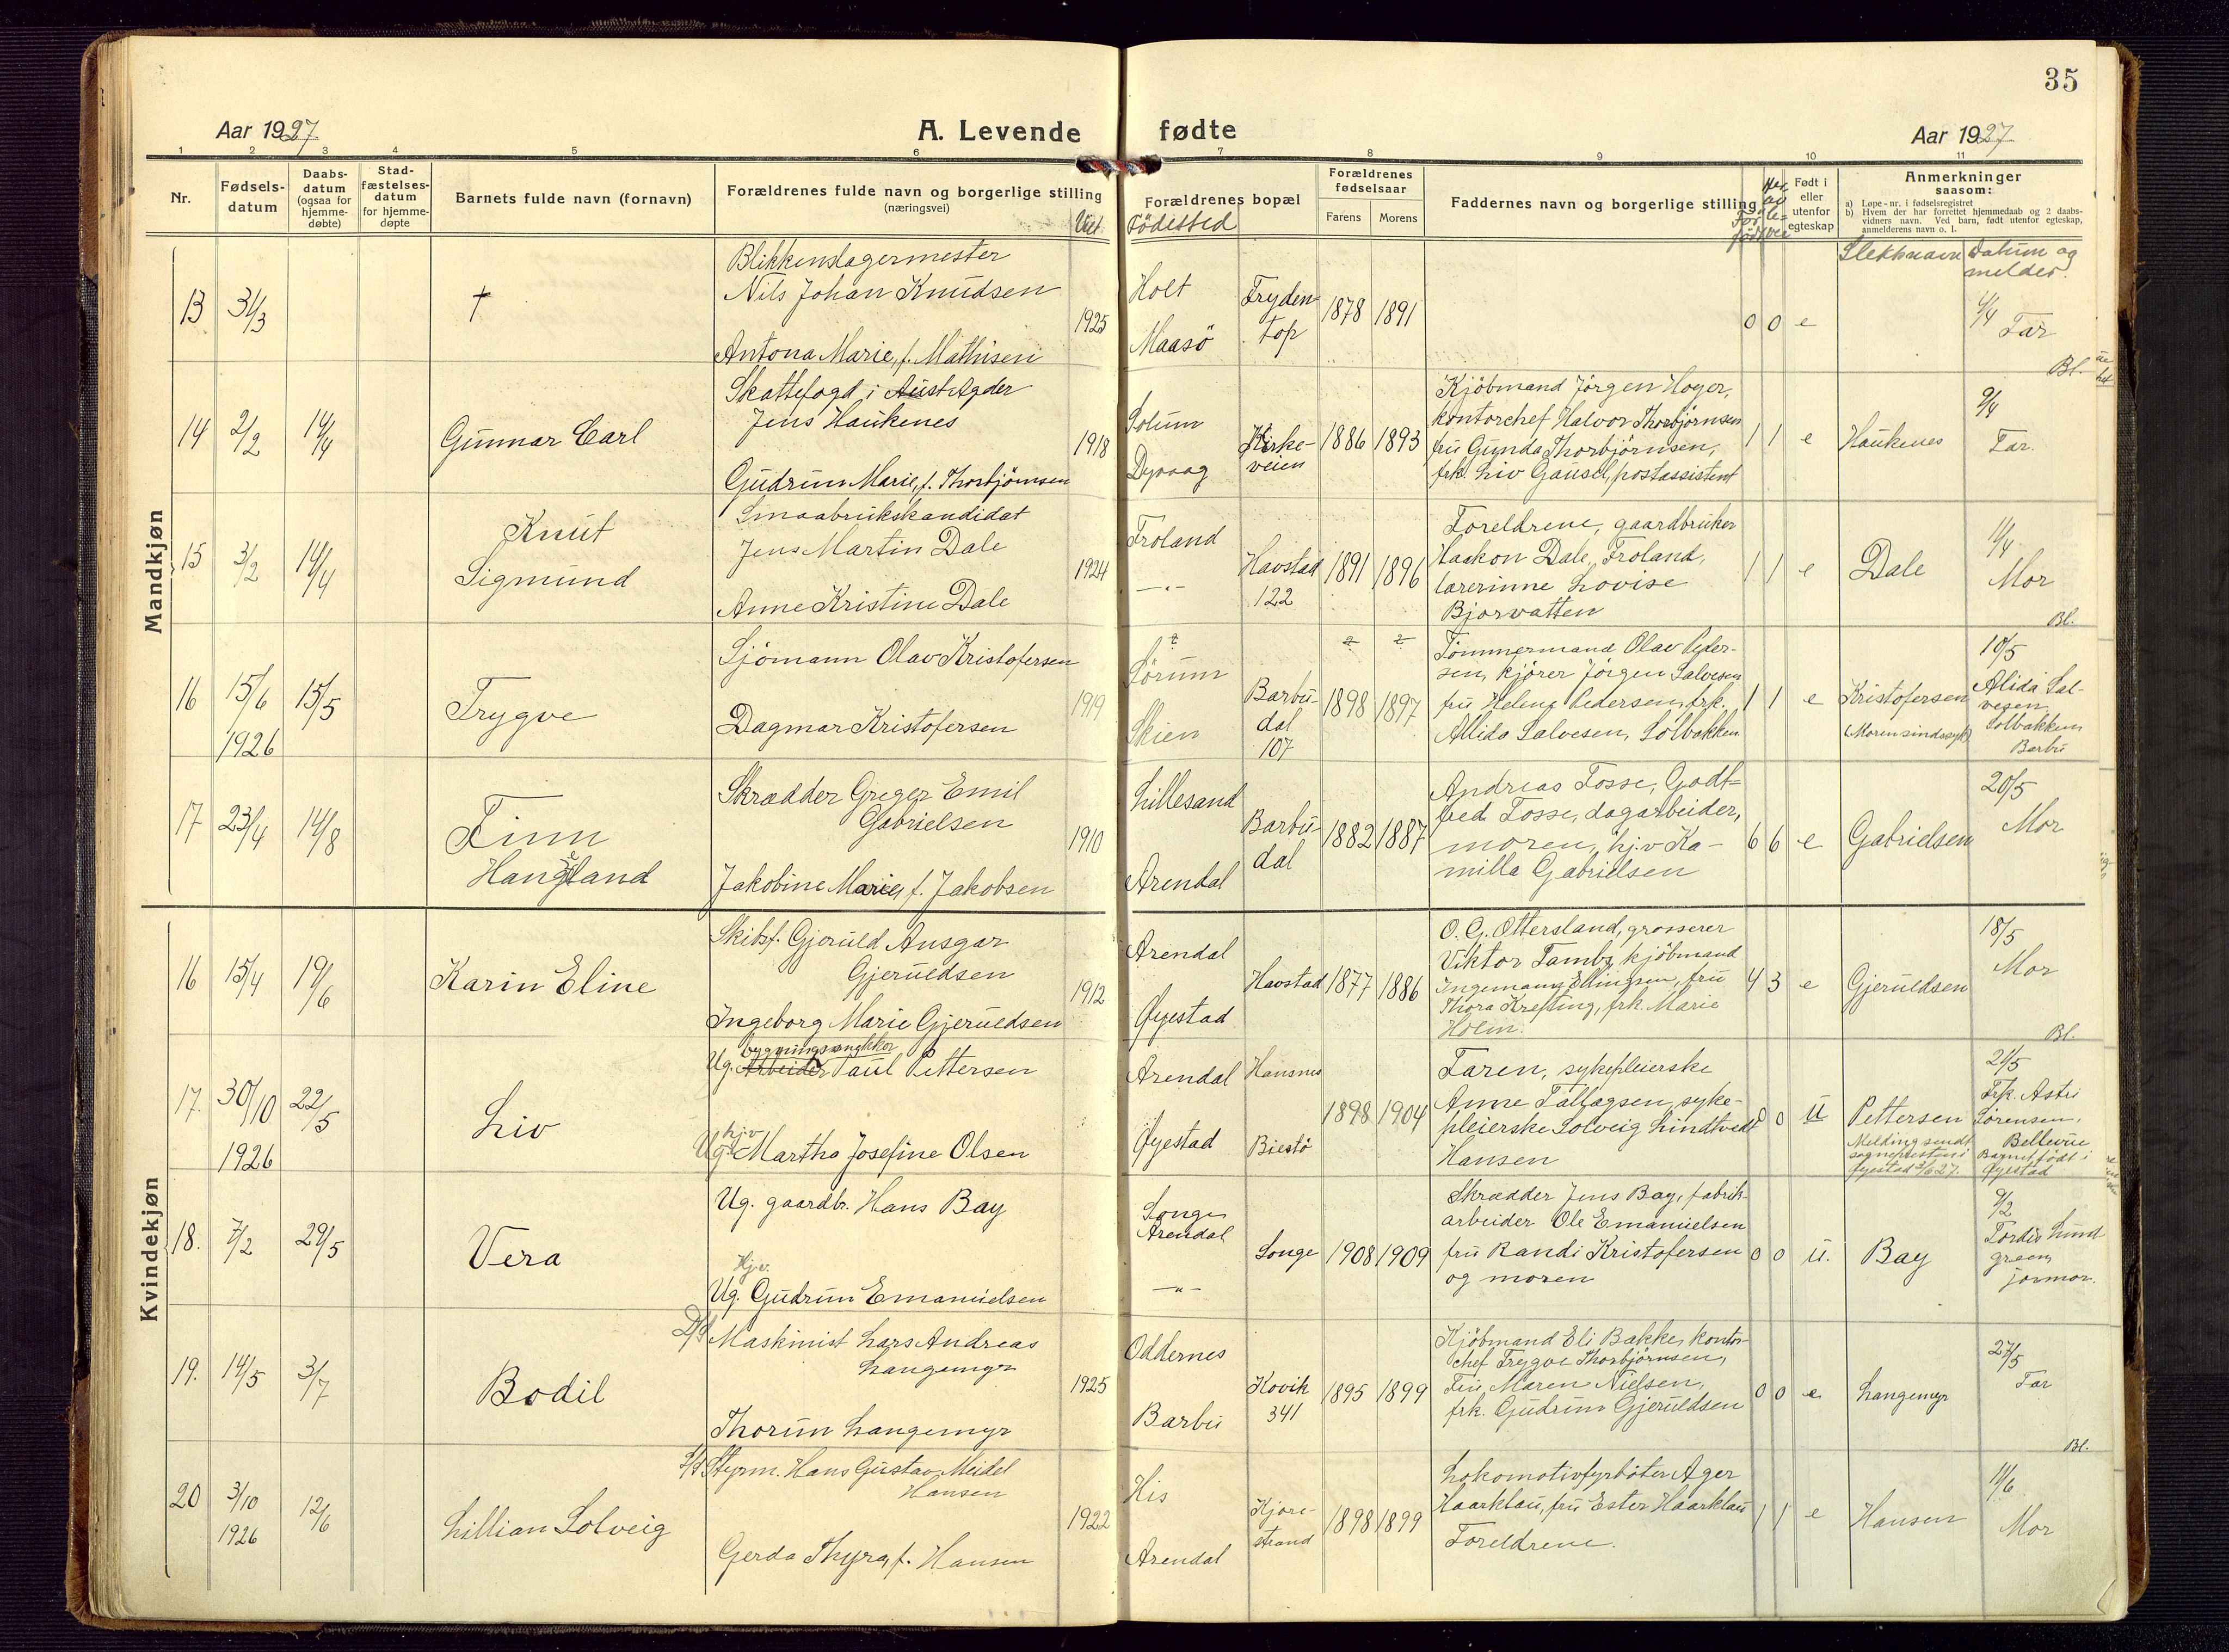 35
Aar 1927
A. Levende fødte
Aar 1927
1 2 3 4 5 6 7 8 9 10 11
Nr.
Fødsels-
datum
Daabs-
datum
(ogsaa for
hjemme-
døbte)
Stad-
fæstelses-
datum
for hjemme-
døpte
Barnets fulde navn (fornavn)
Forældrenes fulde navn og borgerlige stilling
(næringsvei)
Viet
Forældrenes bopæl
Födested
Forældrenes
fødselsaar
Farens
Morens
Faddernes navn og borgerlige stilling
Født i
eller
utenfor
egteskap
Anmerkninger
saasom:
a) Løpe-nr. i fødselsregistret
b) Hvem der har forrettet hjemmedaab og 2 daabs-
vidners navn. Ved barn, født utenfor egteskap,
anmelderens navn o. l.
Slektsnavn
Datum og
melder.
Mandkjøn
13
31/3
†
Blikkenslagermester
Nils Johan Knudsen
Antona Marie, f. Mathisen
1925
Holt
Maasö
Fryden
top
1878 1891
0 0 e
Far
Bl.
14
2/2
14/4
Gunnar Carl
Skattefogd i Aust Agder
Jens Haukenes
Gudrun Marie, f. Thorbjörnsen
1918
Solum
Dypvag
Kirke-
veien
1886 1893
Kjöbmand Jörgen Hoyer,
kontorchef Halvor Thorbjörnsen
fru Gunda Thorbjörnsen,
frk. Liv Gausel, postassistent
1 1 e
Haukenes
9/4
Far.
15
3/2
14/4
Knut
Sigmund
Smaabrukskandidat
Jens Martin Dale
Anne Kristine Dale
1924
Froland
—"—
Havstad
122
1891 1896
Foreldrene, gaardbruker
Haakon Dale, Froland,
lærerinne Lovise
Bjorvatten
1 1 e
Dale
11/4
Mor
Bl.
16
15/6
1926
15/5
Trygve
Sjömann Olav Kristofersen
Dagmar Kristofersen
1919
Sörum
Skien
Barbu-
dal
107
1898 1897
Tömmermand Olav Peder-
sen, kjörer Jörgen Salvesen
fru Helene Pedersen, frk.
Allida Salvesen, Solbakken
1 1 e
Kristofersen
(Moren sindssyk)
10/5
Alida Sal-
vesen
Solbakken
Barbu
17
23/4
14/8
Finn
Haugland
Skrædder Greger Emil
Gabrielsen
Jakobine Marie, f. Jakobsen
1910
Lillesand
Arendal
Barbu-
dal
1882 1887
Andreas Fosse, Godt-
fred Fosse, dagarbeider,
moren, hj.v Ka-
milla Gabrielsen
6 6 e
Gabrielsen
20/5
Mor
Kvindekjøn
16
15/4
19/6
Karin Eline
Skibsf. Gjeruld Ansgar
Gjeruldsen
Ingeborg Marie Gjeruldsen
1912
Arendal
Øyestad
Havstad
1877 1886
O. G. Ottersland, grosserer
Viktor Tambz, kjöbmand
Ingemann Ellingsen, fru
Thora Krefting, frk. Marie
Holm.
4 3 e
Gjeruldsen
18/5
Mor
Bl.
17.
30/10
1926
22/5
Liv
bygningssnekker
Ug. Arbeider Paul Pettersen
hj.v
Ug. Martha Josefine Olsen
Arendal
Øyestad
Hansnes
Biestö
1898 1904
Faren, sykepleierske
Anne Tallagsen, syke-
pleierske Solveig Lindtvedt
Hansen
0 0 u
Pettersen
Melding sendt
sogneprestent i
Øyestad 3/6 27.
21/5
Frk. Astri
Sörensen,
Bellevue
Barnet födt i
Øyestad
18.
7/2
29/5
Vera
Ug. gaardbr. Hans Bay
Hj.v.
Ug. Gudrun Emanuelsen
Songe
Arendal
—"—
Songe
1908 1909
Skrædder Jens Bay, fabrik-
arbeider Ole Emanuelsen
fru Randi Kristofersen
og moren
0 0 u.
Bay
9/2
Tordis Lund
green,
jormor.
19.
14/5
3/7
Bodil
D/S Maskinist Lars Andreas
Langemyr
Thorun Langemyr
1925
Oddernes
Barbu
Kovik
341
1895 1899
Kjöbmand Eli Bakke, kontor-
chef Trygve Thorbjörnsen,
Fru Maren Nielsen,
frk. Gudrun Gjeruldsen
0 0 e
Langemyr
27/5
Far
Bl.
20
3/10
1926
12/6
Lillian Solveig
Styrm. Hans Gustav Meidel
Hansen
Gerda Thyra, f. Hansen
1922
His
Arendal
Kjore-
strand
1898 1899
Lokomotivfyrböter Ager
Haarklau, fru Ester Haarklau
Foreldrene.
1 1 e
Hansen
11/6
Mor